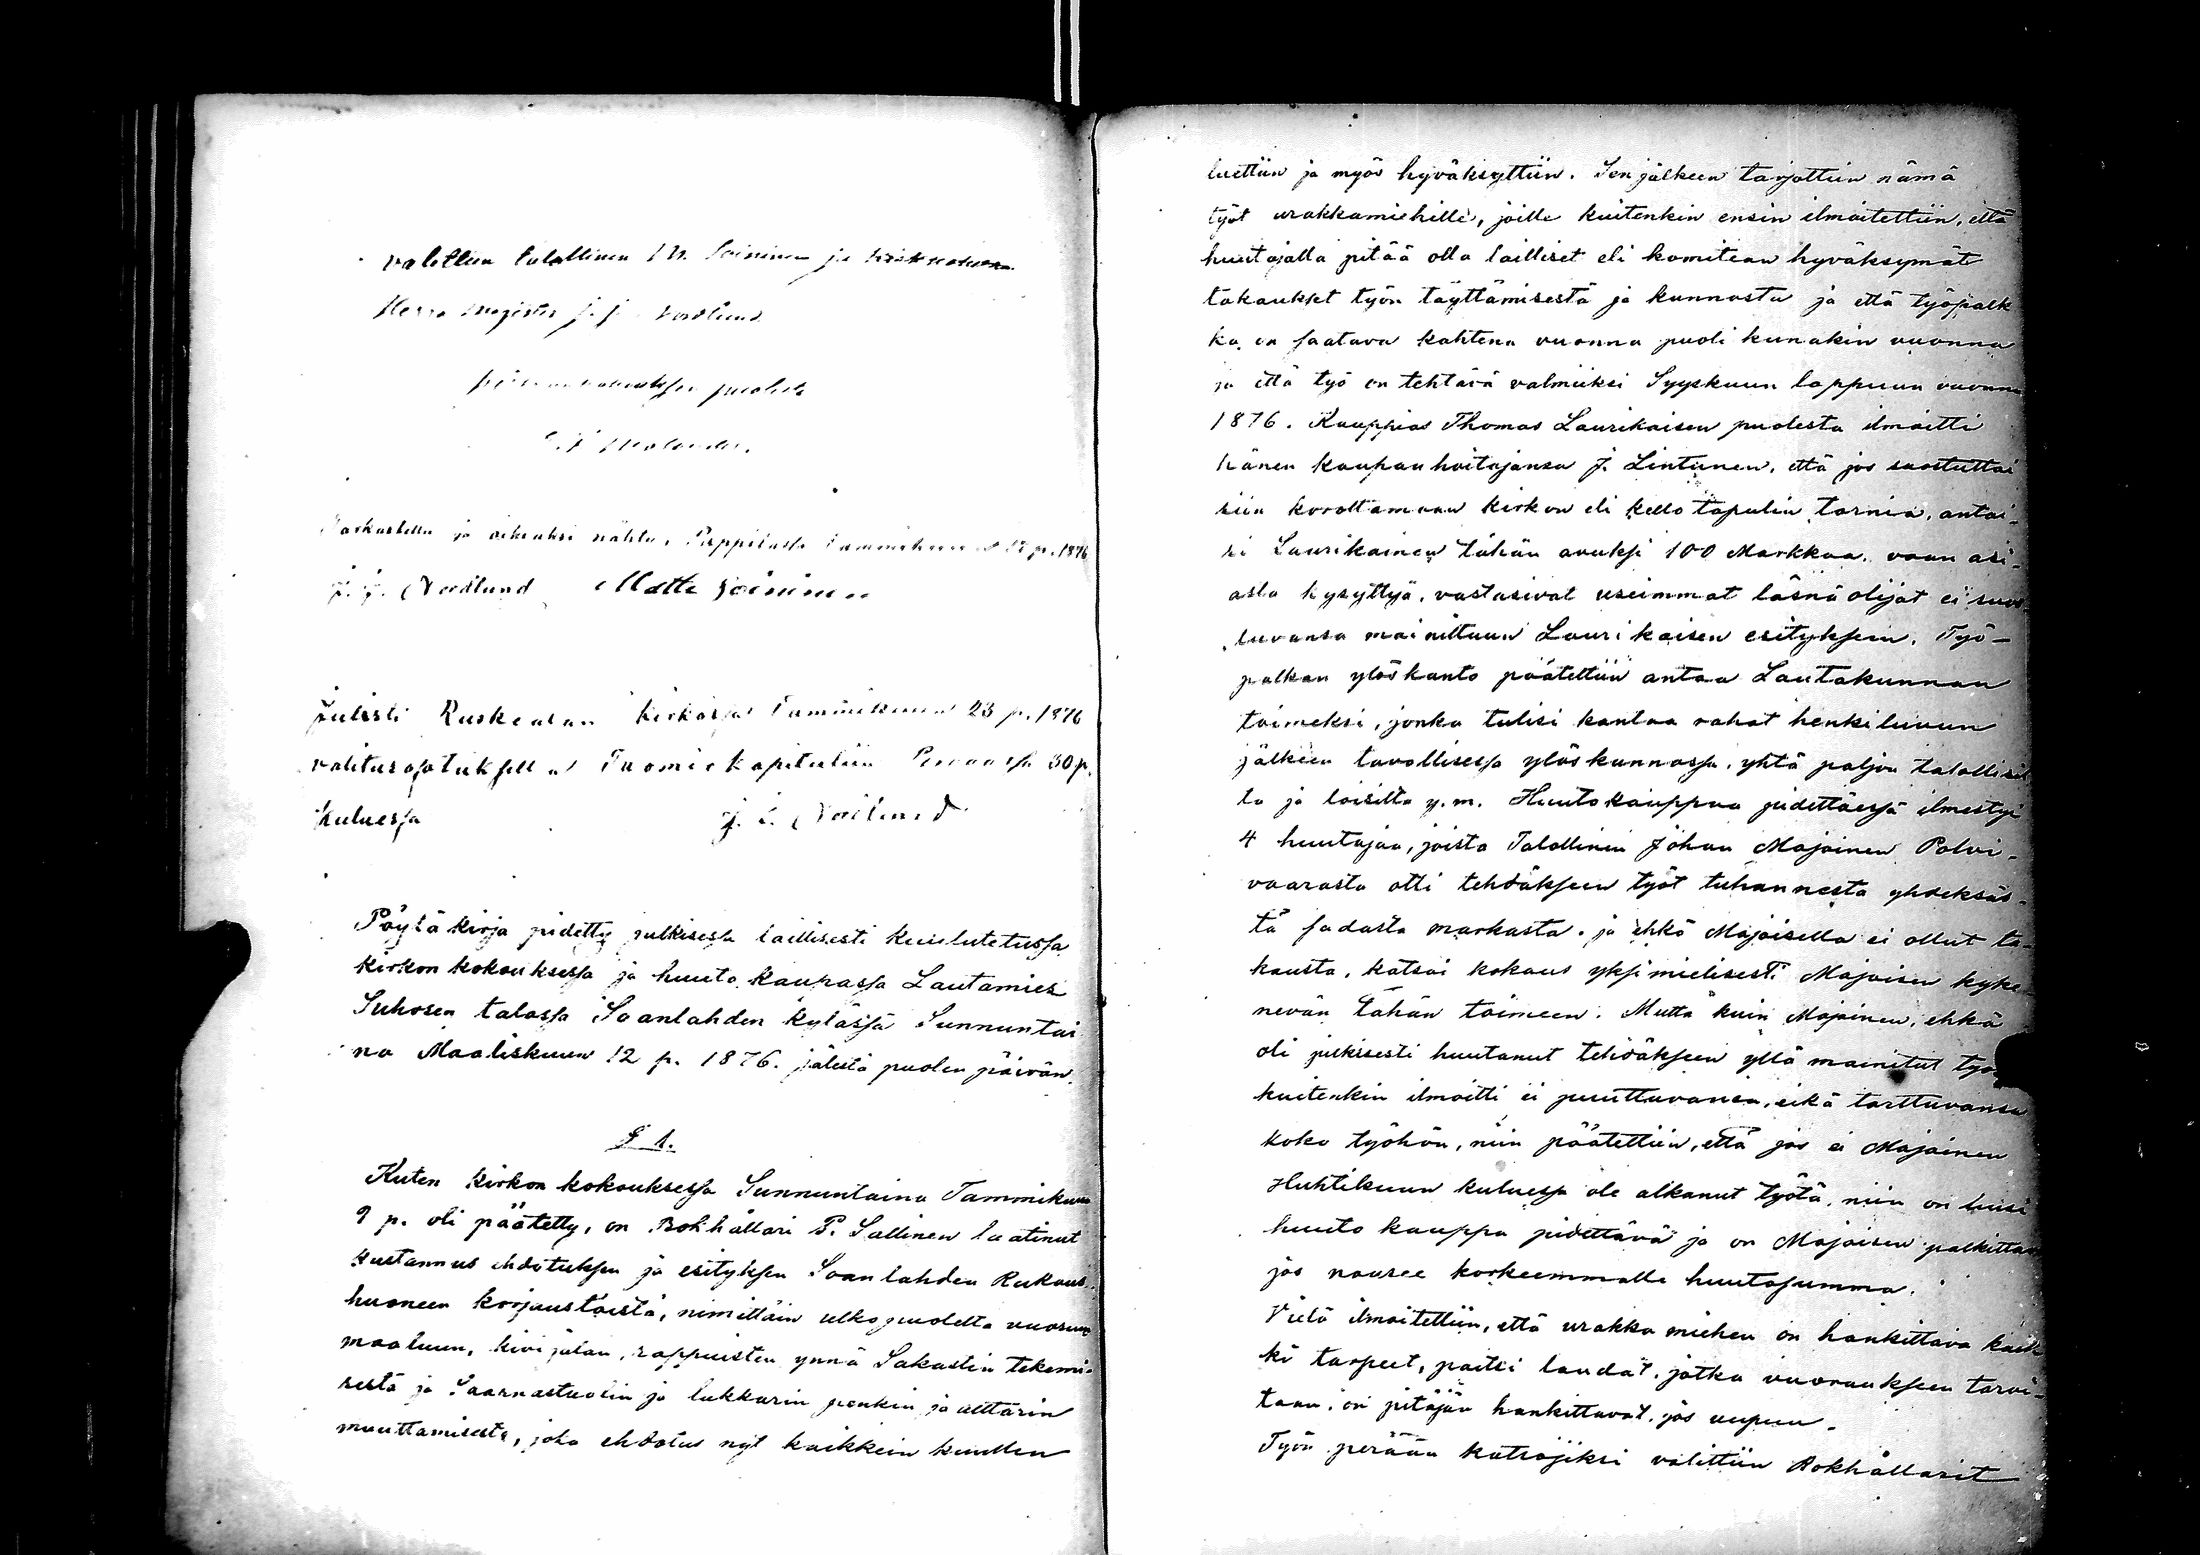 valittiin talollinen M. Soininen ja
Herra Magister J. J. Nordlund
puolesta
Tarkastettu ja oikeaksi nähty, Pappilassa Tammikuun p. 1876
J. J. Nordlund Matti Soininen
Julisti Ruskealan kirkossa Tammikuun 23 p. 1876
valitusosotuksella Tuomiokapituliin Porvoossa 30 p.
kuluessa J. J. Nordlund
Pöytäkirja pidetty julkisessa laillisesti kuulutetussa
kirkon kokouksessa ja huuto kaupassa Lautamies
Suhosen talossa Soanlahden kylässä Sunnuntai
na Maaliskuun 12 p. 1876. jälestä puolen päivän.
§ 1.
Kuten kirkon kokouksessa Sunnuntaina Tammikuun
9 p. oli päätetty, on Bokhållari P. Sallinen laatinut
kustannus ehdotuksen ja esityksen Soanlahden Rukous-
huoneen korjaustöistä, nimittäin ulkopuolelta vuorun
maaluun, kivijalan, rappuisten ynnä Sakastin tekemi-
sestä ja Saarnastuolin ja lukkarin penkin ja alttarin
muuttamisesta, joka ehdotus nyt kaikkein kuullen
luettiin ja myös hyväksyttiin. Sen jälkeen tarjottiin nämä
työt urakkamiehille, joille kuitenkin ensin ilmoitettiin, että
huutajalla pitää olla lailliset eli komitean hyväksymät
takaukset työn täyttämisestä ja kunnosta ja että työpalk
ka on saatava kahtena vuonna puoli kunakin vuonna
ja että työ on tehtävä valmiiksi Syyskuun loppuun vuonna
1876. Kauppias Thomas Laurikaisen puolesta ilmoitti
hänen kaupan hoitajansa J. Lintunen, että jos suostuttai
siin korottamaan kirkon eli kello tapulin tornia, antai-
si Laurikainen tähän avuksi 100 Markkaa, vaan asi-
asta kysyttyä, vastasivat useimmat läsnä olijat ei suos
tuvansa mainittuun Laurikaisen esitykseen. Työ-
palkan ylöskanto päätettiin antaa Lautakunnan
toimeksi, jonka tulisi kantaa rahat henkiluvun
jälkeen tavallisessa ylöskannossa, yhtä paljon talollisil
ta ja loisilta y. m. Huutokauppaa pidettäessä ilmestyi
4 huutajaa, joista Talollinen Johan Majoinen Polvi-
vaarasta otti tehdäkseen työt tuhannesta yhdeksäs-
tä sadasta markasta. ja ehkä Majoisella ei ollut ta-
kausta, katsoi kokous yksimielisesti Majoisen kyke-
nevän tähän toimeen. Mutta kuin Majoinen, ehkä
oli julkisesti huutanut tehdäkseen yllä mainitut työt
kuitenkin ilmoitti ei puuttuvansa, eikä tarttuvansa
koko työhön, niin päätettiin, että jos ei Majoinen
Huhtikuun kuluessa ole alkanut työtä, niin on uusi
huuto kauppa pidettävä ja on Majoisen palkittava
jos nousee korkeemmalle huutosumma.
Vielä ilmoitettiin, että urakka miehen on hankittava kaik
ki tarpeet, paitsi laudat, jotka vuoraukseen tarvi-
taan, on pitäjän hankittavat, jos uupuu.
Työn perään katsojiksi valittiin Bokhållarit